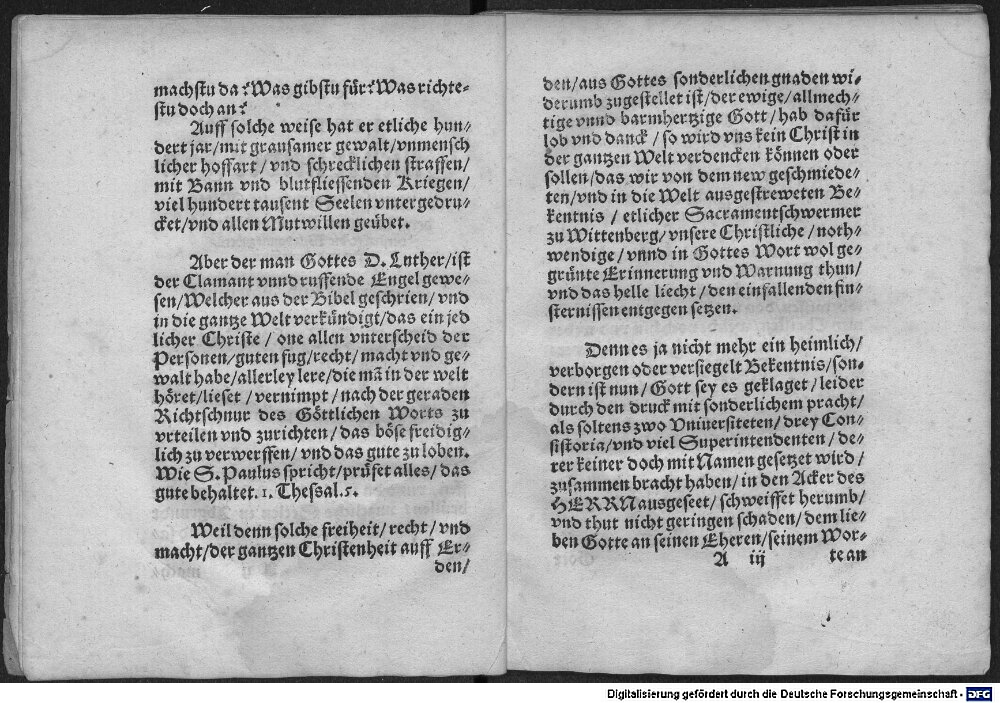 machstu da? Was gibstu für? Was richte-
stu doch an?
Auff solche weise hat er etliche hun-
dert jar/mit grausamer gewalt/vnmensch
licher hoffart/vnd schrecklichen straffen/
mit Bann vnd blutfliessenden Kriegen/
viel hundert tausent Seelen vntergedru-
cket/vnd allen Mutwillen geübet.
Aber der man Gottes D. Luther/ist
der Clamant vnnd ruffende Engel gewe-
sen/Welcher aus der Bibel geschrien/vnd
in die gantze Welt verkündigt/das ein jed
licher Christe/one allen vnterscheid der
Personen/guten fug/recht/macht vnd ge-
walt habe/allerley lere/die mã in der welt
höret/lieset/vernimpt/nach der geraden
Richtschnur des Göttlichen Worts zu
vrteilen vnd zurichten/das böse freidig-
lich zu verwerffen/vnd das gute zu loben.
Wie S. Paulus spricht/prüfet alles/das
gute behaltet. 1. Thessal. 5.
Weil denn solche freiheit/recht/vnd
macht/der gantzen Christenheit auff Er-
den/
den/aus Gottes sonderlichen gnaden wi-
derumb zugestellet ist/der ewige/allmech-
tige vnnd barmhertzige Gott/hab dafür
lob vnd danck/so wird vns kein Christ in
der gantzen Welt verdencken können oder
sollen/das wir von dem new geschmiede-
ten/vnd in die Welt ausgestreweten Be-
kentnis/etlicher Sacramentschwermer
zu Wittenberg/vnsere Christliche/noth-
wendige/vnnd in Gottes Wort wol ge-
grünte Erinnerung vnd Warnung thun/
vnd das helle liecht/den einfallenden fin-
sternissen entgegen setzen.
Denn es ja nicht mehr ein heimlich/
verborgen oder versiegelt Bekentnis/son-
dern ist nun/Gott sey es geklaget/leider
durch den druck mit sonderlichem pracht/
als soltens zwo Vniuersiteten/drey Con-
sistoria/vnd viel Superintendenten/de-
rer keiner doch mit Namen gesetzet wird/
zusammen bracht haben/in den Acker des
HERRN ausgeseet/schweiffet herumb/
vnd thut nicht geringen schaden/dem lie-
ben Gotte an seinen Eheren/seinem Wor-
A iij te an
Digitalisierung gefördert durch die Deutsche Forschungsgemeinschaft - DFG